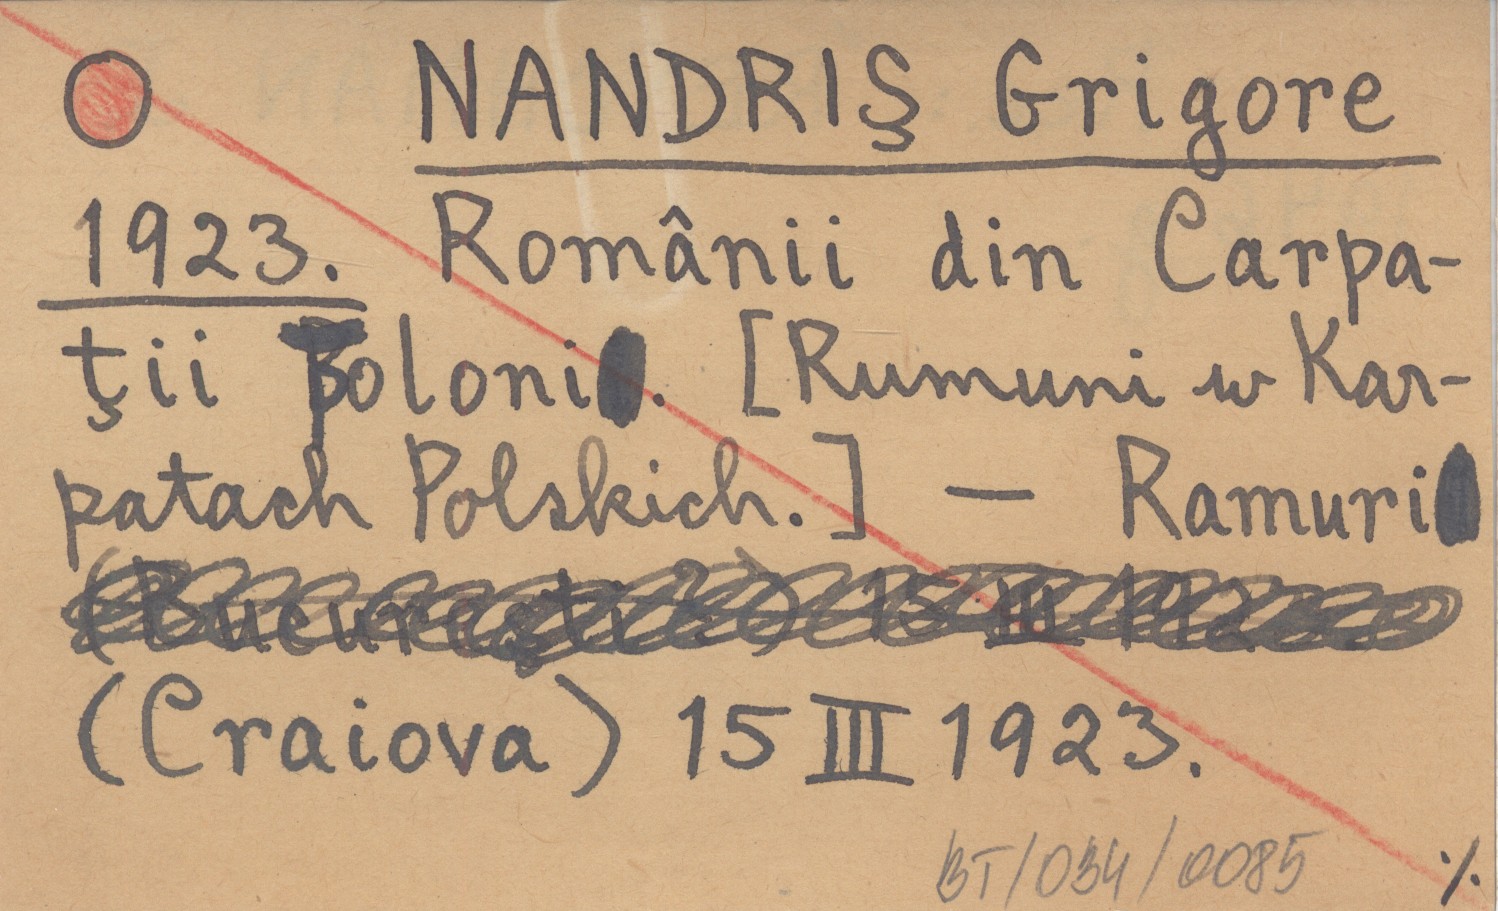 NANDRIŞ Grigore
1923. Românii din Carpa-
ţii Poloni. [Rumuni w Kar-
patach Polskich.] — Ramuri
(Craiova) 15 III 1923.
BT/034/0085
·/.